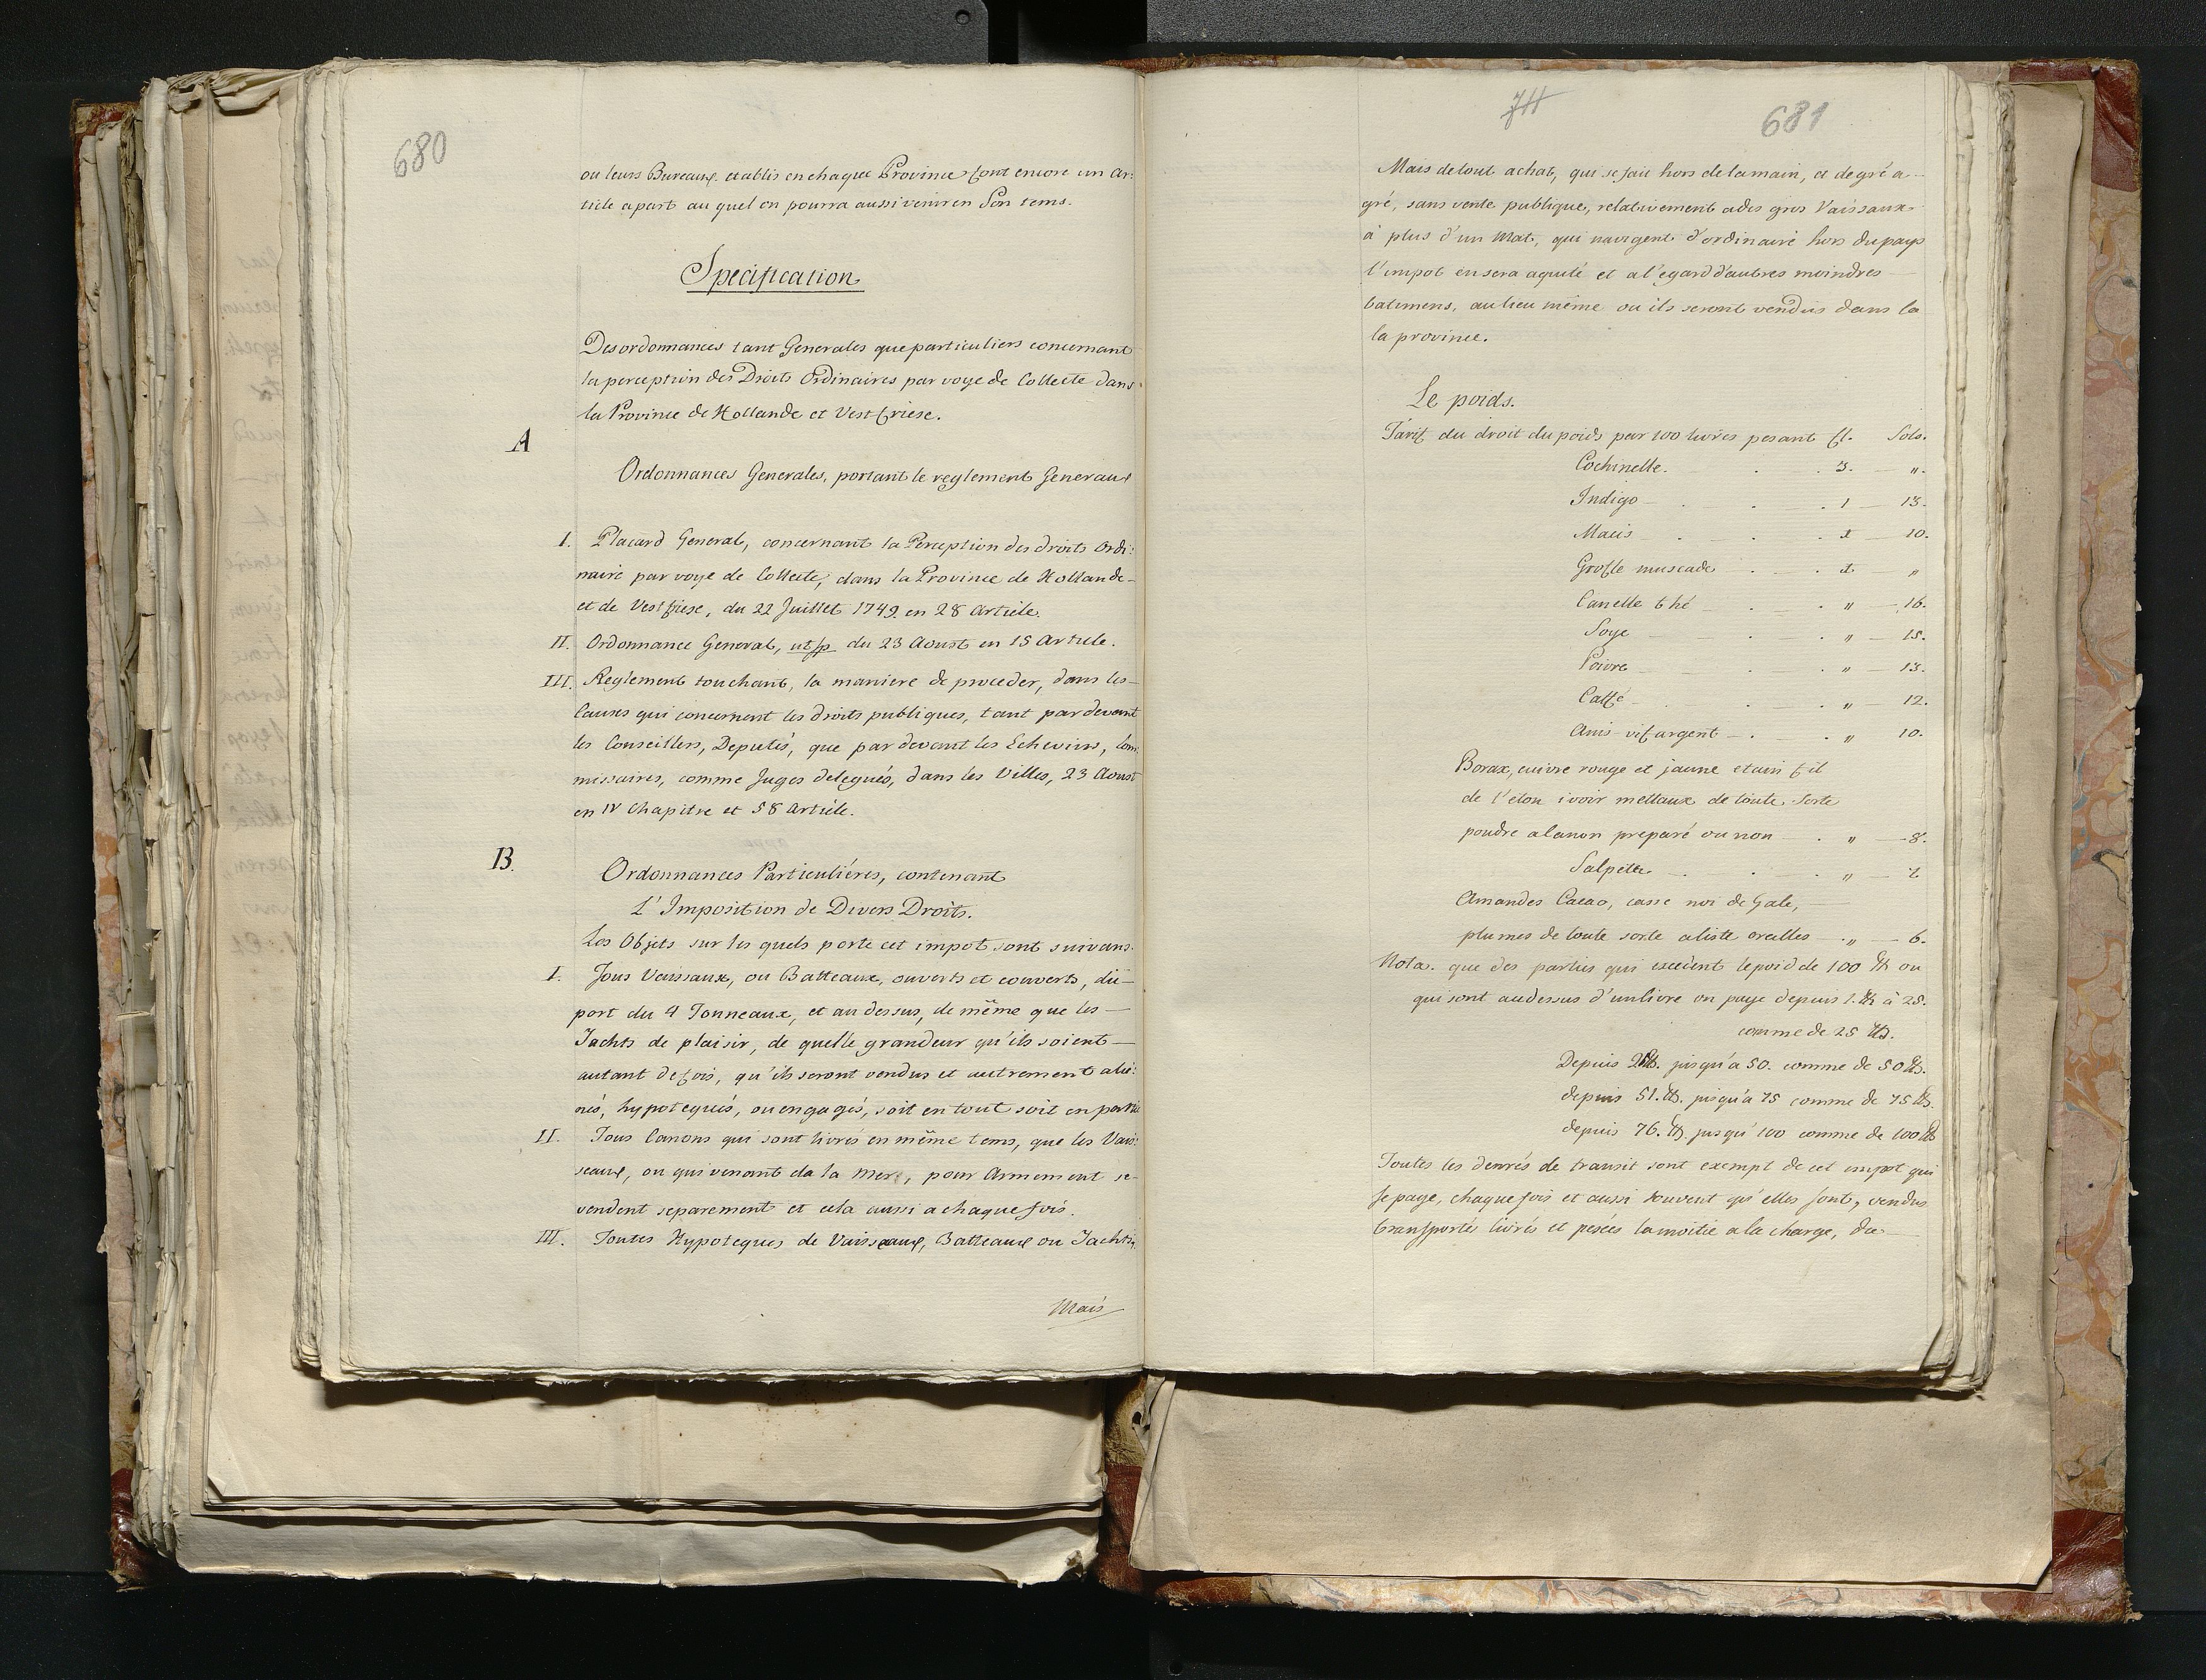 680
ou leurs Bureaux etablis en chaque Province font encore un ar:
ticle apart au quel on pourra aussi venir en Son tems.
Specification
Des ordonnances tant Generales que particuliers concernant
la perception des Droits Ordinaires par voye de Collecte dans
la Province de Hollande et Vestfriese.
A
Ordonnances Generales, portant le reglement Generaux
I. Placard General, concernant la Perception des droits Ordi:
naire par voye de Collecte, dans la Province de Hollande-
et de Vestfriese, du 22 Juillet 1749. en 28 Article.
II. Ordonnance General, ut sp du 23 Aoust en 15 Article.
III. Reglement touchant, la maniere de proceder, dans les-
Causes qui concernent les droits publiques, tant par devant
les Conseillers, Deputés, que par devant les Echevins, Com
missaires, comme Juges delegués, dans les Villes, 23 Aoust
en IV Chapitre et 58 Article.
B.
Ordonnances Particuliéres, contenant
L'Imposition de Divers Droits.
Les Objets sur les quels porte cet impot, sont suivans.
I. Tous Vaissaux, ou Batteaux, ouverts et couverts, du-
port du 4 Tonneaux, et au dessus, de même que les-
Jachts de plaisir, de quelle grandeur qu'ils soient-
autant de fois, qu'ils seront vendus et autrement alie:
nés, hypotequés, ou engagés, soit en tout soit en partie
II. Tous Canons qui sont livrés en même tems, que les Vais:
seaux, ou qui venant da la mer, pour Armement se-
vendent separement et cela aussi a chaque fois.
III. Toutes Hypoteques de Vaisseaux, Batteaux ou Jachts,
Mais
711 681
Mais de tout achat, qui se fait hors de la main, et de gré a-
gré, sans vente publique, relativement a des gros Vaissaux
à plus d'un Mat, qui navigent d'ordinaire hors du pays
l'impot en sera aquité et a l'egard d'autres moindres-
batimens, au lieu même ou ils seront vendus dans la
la province.
Le poids.
Tarif du droit du poids par 100 livres pesant fl. Sols.
Cochinelle. 3. ".
Indigo 1 13.
Macis 1 10.
Grofle muscade 1 "
Canelle thé " 16.
Soye " 15.
Poivre " 13.
Caffé " 12.
Anis vif argent " 10.
Borax, cuivre rouge et jaune etain fil
de l'eton ivoir mettaux de toute Sorte
poudre a canon preparé ou non " 8.
Salpeter "
Amandes Cacao, casse noi de Gale,
plumes de toute sorte " 6.
Nota. que des parties qui excedent le poid de 100 ℔ ou
qui sont audessus d'un livre on paye depuis 1. ℔ à 25.
comme de 25 ℔.
Depuis 26 ℔. jusqu'a 50. comme de 50 ℔.
depuis 51. ℔. jusqu'a 75 comme de 75 ℔.
depuis 76. ℔ jusqu' 100 comme de 100 ℔
Toutes les denrés de transit sont exempt de cet impot qui
se paye, chaque fois et aussi souvent qu'elles sont, vendus
transportés livrés et pesées la moitie a la charge, du